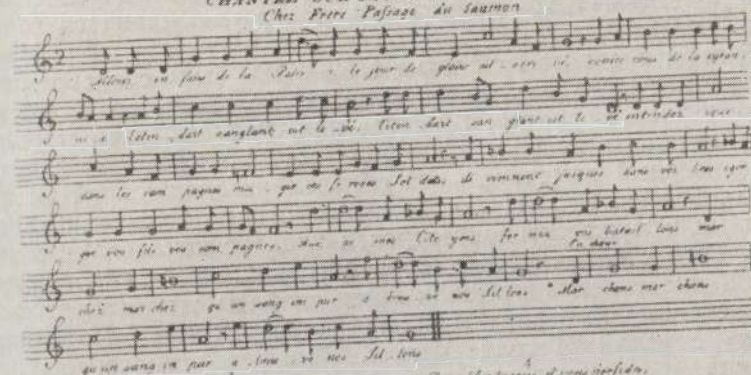 Chez Frere Passage du Saumon
Allons en fans de la Patri e le jour de gloire est
contre nous de la tyran
ni e l'eten dart sanglant est le vé, l'eten dart san glant est le vé entendez vous
dans les cam pagnes mu gir ces fe roces Sol dats ils viennent jusques dans vos bras
gor vos fils vos com pagnes. Aux ar mes Cito yens for mez vos batail lons mar
chez mar chez qu un sang im pur a breu ve nos Sil lons Mar chons mar chons
qu'un sang im pur a breu ve nos Sil lons